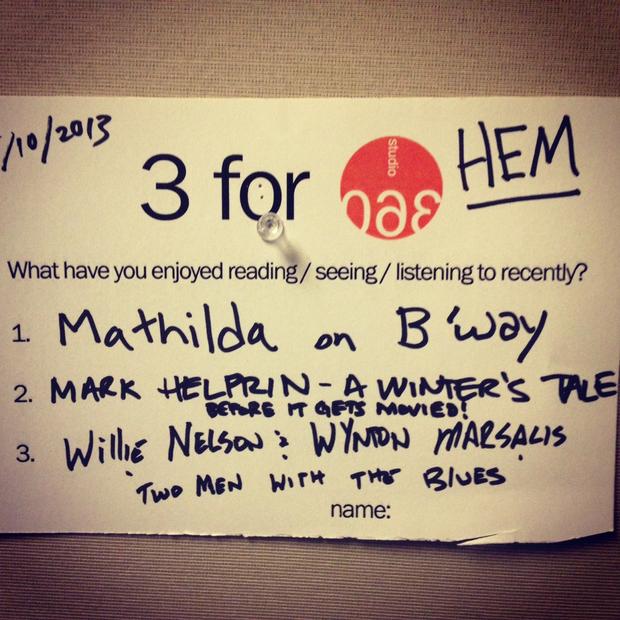 /10/2013
3 for studio 360 HEM
What have you enjoyed reading / seeing / listening to recently?
1. Mathilda on B'way
2. MARK HELPRIN - A WINTER'S TALE
BEFORE IT GETS MOVIED!
3. Willie NELSON & WYNTON MARSALIS
TWO MEN WITH THE BLUES
name: